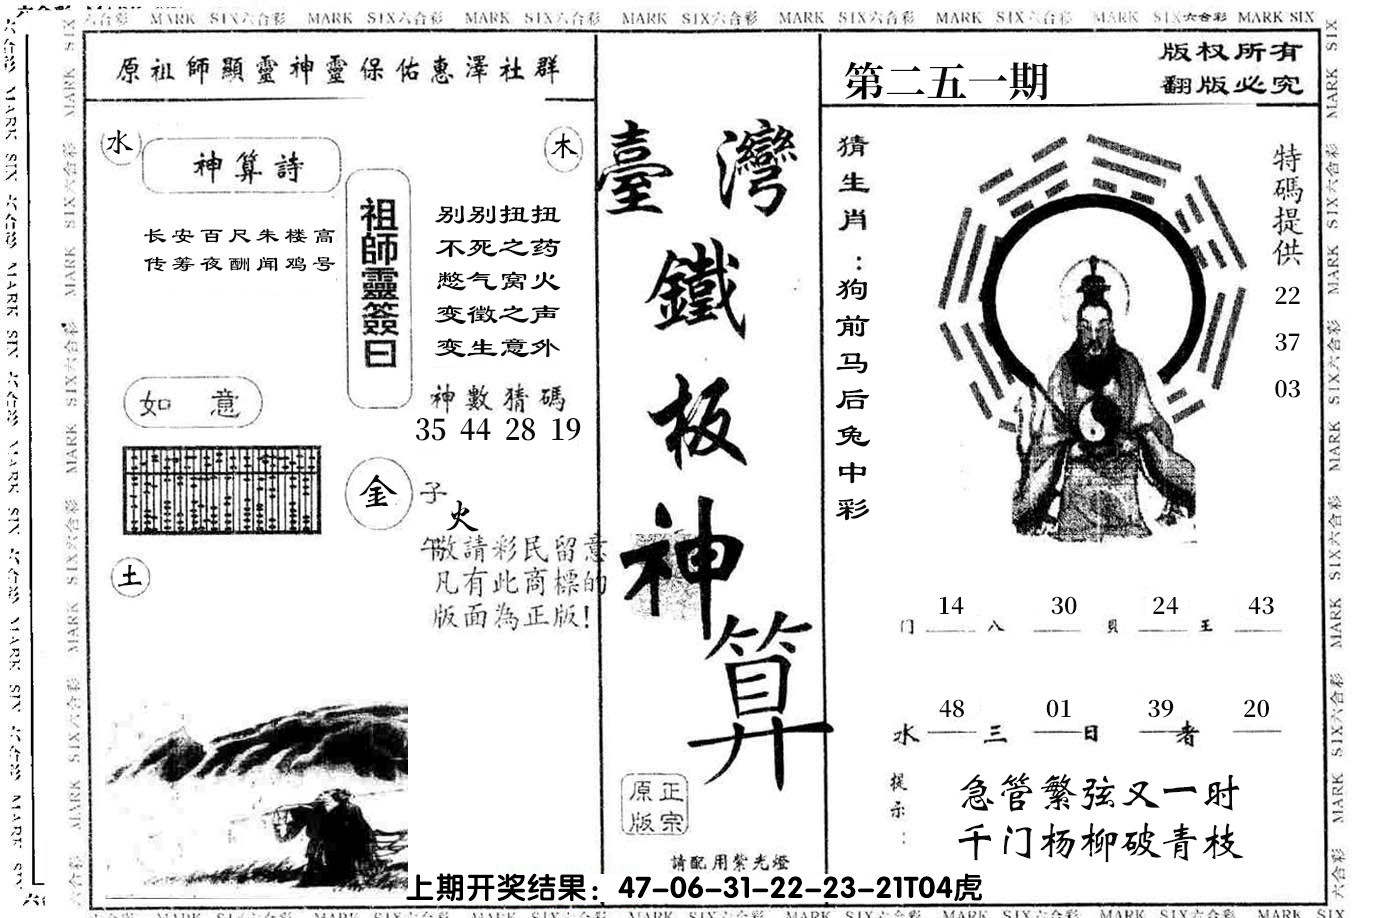 MARK SIX六合彩 MARK SIX六合彩 MARK SIX六合彩 MARK SIX六合彩 MARK SIX六合彩 MARK SIX六合彩 MARK SIX六合彩 MARK SIX
原祖師顯靈神靈保佑惠澤社群
水
神算詩
木
长安百尺朱楼高
传筹夜酬闻鸡号
祖師靈簽曰
别别扭扭
不死之药
憋气窝火
变徵之声
变生意外
如意
神數猜碼
35 44 28 19
金
子
火
午
敬請彩民留意
凡有此商標的
版面為正版!
土
臺灣
鐵
板
神
算
正宗
原版
請配用紫光燈
第二五一期
版权所有
翻版必究
猜生肖：狗前马后兔中彩
特碼提供
22
37
03
14 30 24 43
门 八 貝 王
48 01 39 20
水 三 日 者
提示：
急管繁弦又一时
千门杨柳破青枝
上期开奖结果：47-06-31-22-23-21T04虎